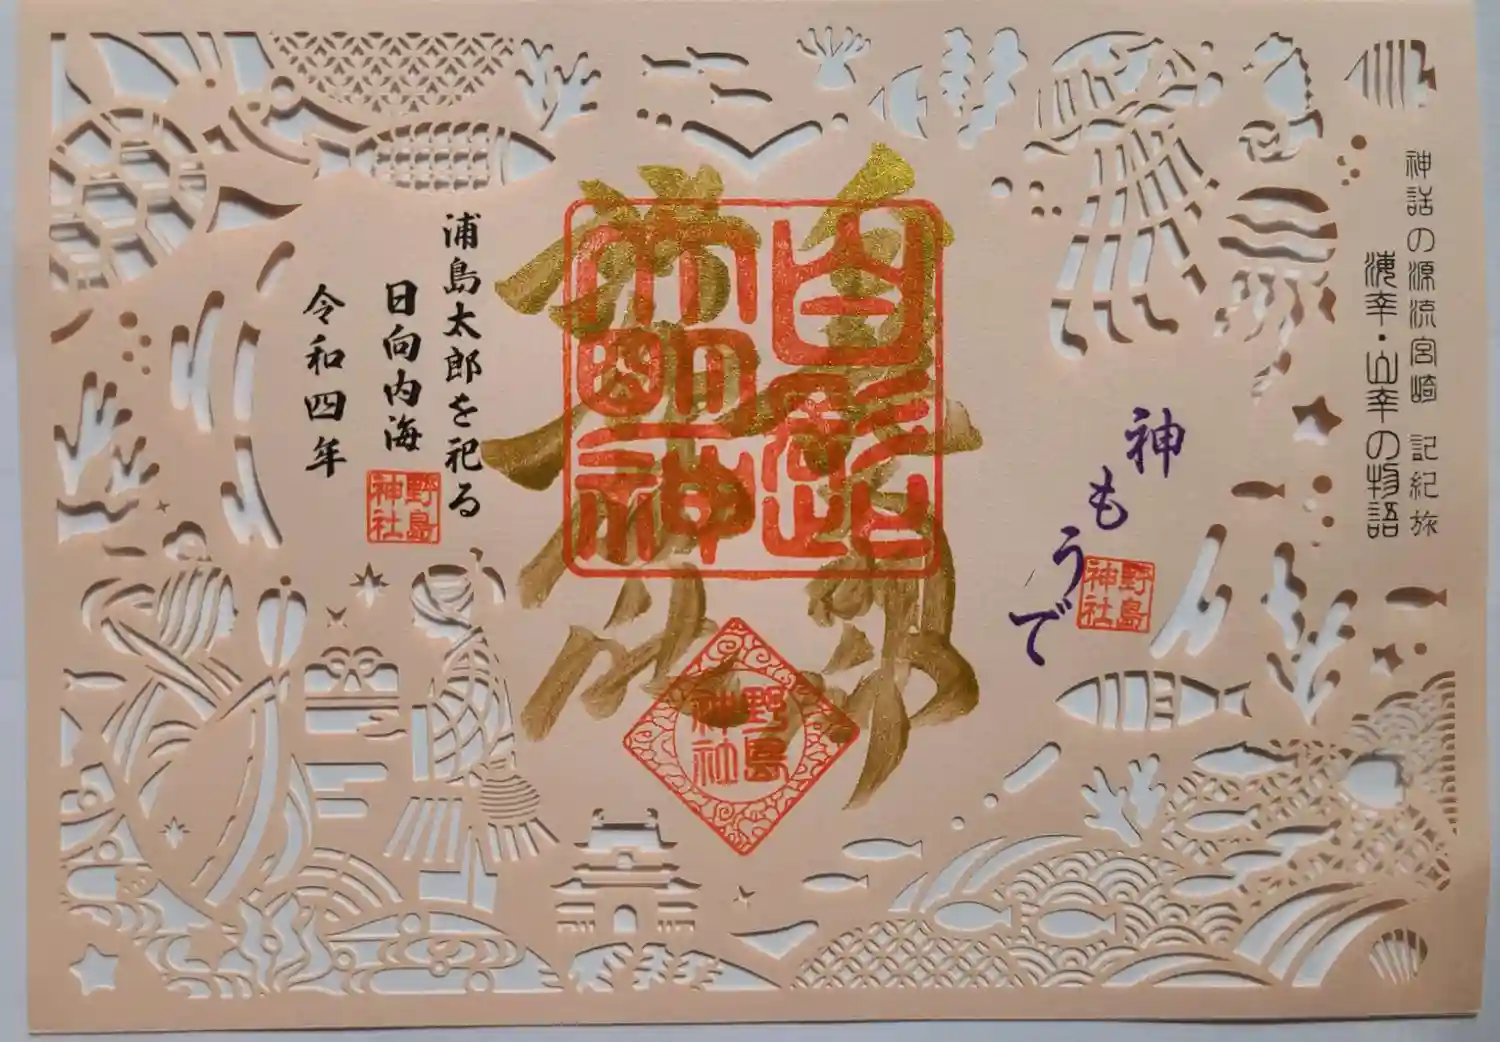 神話の源流宮崎 記紀旅
海幸・山幸の物語
神もうで
野島
神社
白髭
大明神
野島
神社
浦島太郎を祀る
日向内海
野島
神社
令和四年